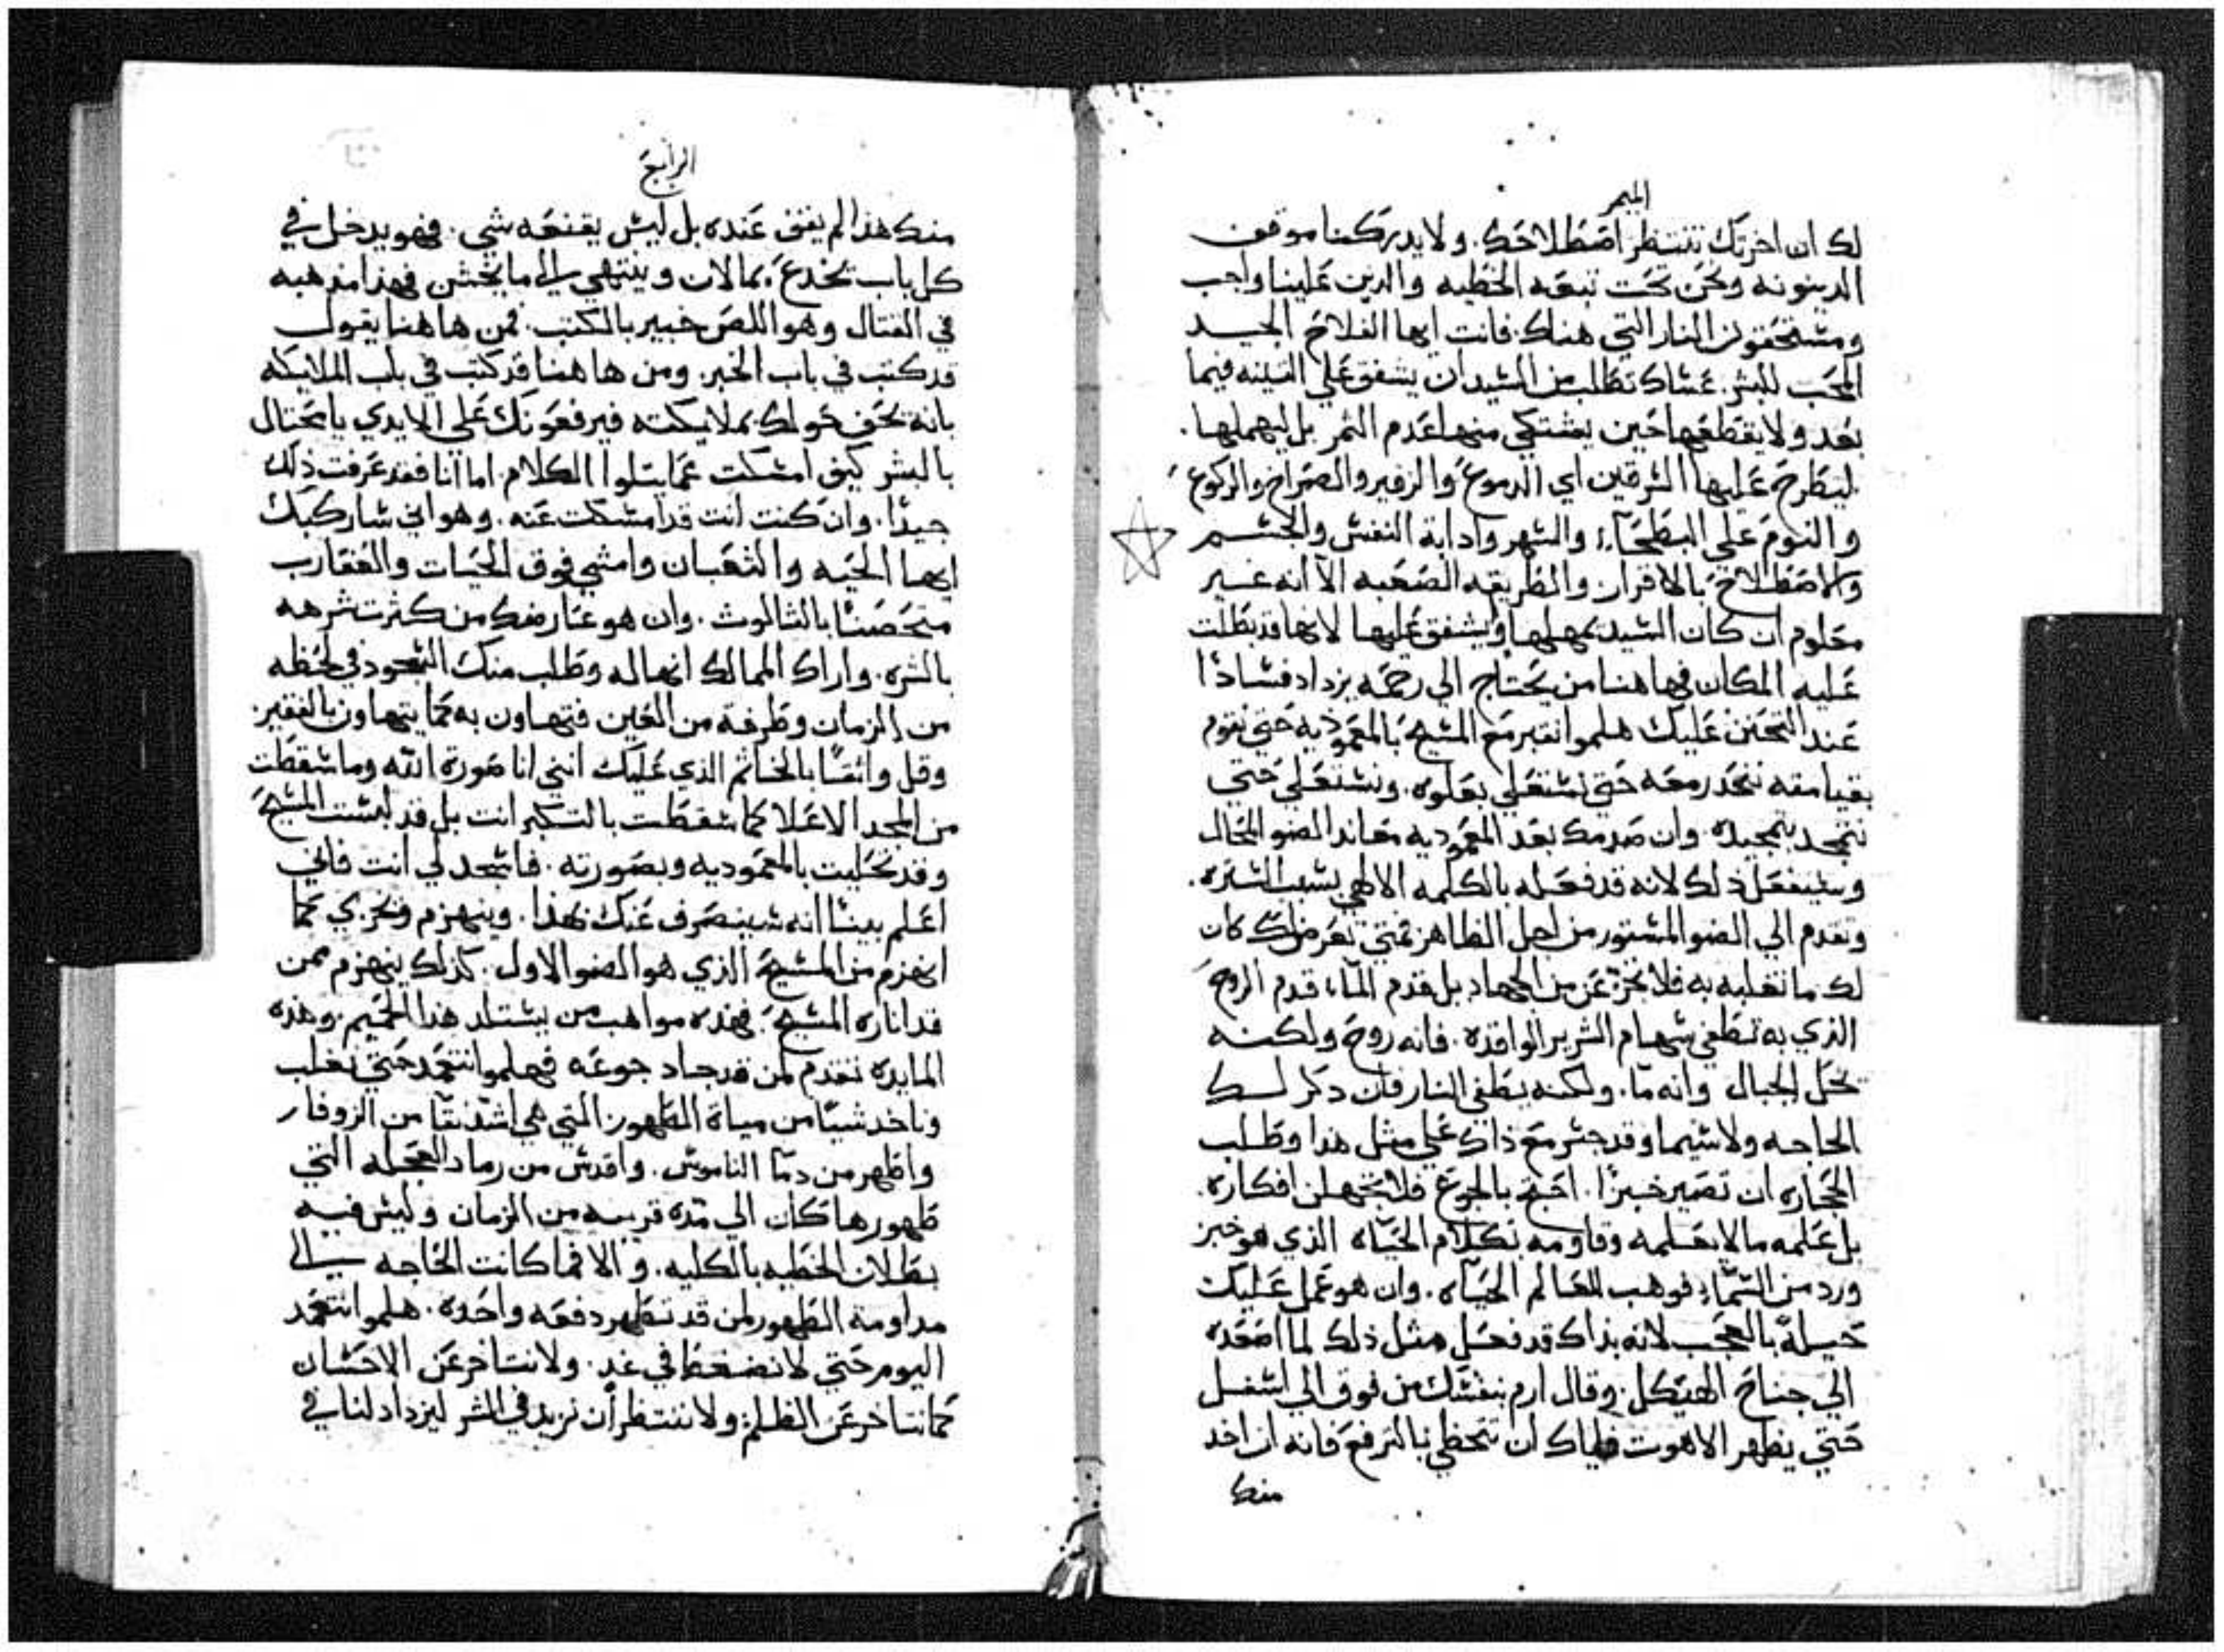 الميمر
لك ان اخرتك تنتظر اصطلاحك. ولا يدركنا موقف
الدينونه ونحن تحت تبعه الخطيه والدين علينا واجب
ومستحقون النار التي هناك فانت ايها الفلاح الجيد
المحب للبشر. عساك تطلب من السيد ان يشفق علي التينه فيما
بعد ولا يقطعها حين يشتكي منها عدم الثمر بل ليهملها.
ليطرح عليها السرقين اي الدموع والزفير والصراخ والركوع
والنوم علي البطحاء والسهر واذابة النفس والجسم
والاصطلاح بالاقرار والطريقه الصعبه الا انه غير
معلوم ان كان السيد يمهلها ويشفق عليها لانها قد بطلت
عليه المكان فيها هنا من يحتاج الي رحمه يزداد فسادا
عند التحنن عليك هلموا نقبر مع المسيح بالمعموديه حتي نقوم
بقيامته ننحدر معه حتي نستعلي بعلوه. ونستعلي حتي
نتمجد بتمجيده. وان صدمك بعد المعموديه معاند الضو المحال
وسيفعل ذلك لانه قد فعله بالكلمه الالهي بسبب الستره.
وتقدم الي الضو المستور من اجل الظاهر فمتي تعرض لك كان
لك ما تغلبه به فلا تجزعن من الجهاد بل قدم الماء قدم الروح
الذي به تطفي سهام الشرير الواقده. فانه روح ولكنه
يحل الجبال وانه ما. ولكنه يطفي النار فان ذكر لك
الحاجه ولاسيما وقد جسر مع ذاك علي مثل هذا وطلب
الحجاره ان تصير خبزا. احتج بالجوع فلا تجهلن افكاره.
بل علمه ما لا يعلمه وقاومه بكلام الحياه الذي هو خبز
ورد من السماء فوهب للعالم الحياه. وان هو عمل عليك
حيلة بالعجب لانه بذاك قد فعل مثل ذلك لما اصعده
الي جناح الهيكل. وقال ارم بنفسك من فوق الي اسفل
حتي يظهر الاهوت فاياك ان تحظي بالترفع فانه ان اخد
منك
الرابع
منك هذا لم يقف عنده بل ليس يقنعه شي. فهو يدخل في
كل باب يخدع بمالان وينتهي الي ما يخشن فهذا مذهبه
في القتال وهو اللص خبير بالكتب. فمن هاهنا يقول
قد كتب في باب الخبز. ومن هاهنا قد كتب في باب الملايكه
بانه تحف حولك ملايكته فيرفعونك علي الايدي يا محتال
بالبشر كيف امسكت عما يتلوا الكلام. اما انا فقد عرفت ذلك
جيدا. وان كنت انت قد امسكت عنه. وهو اني ساركبك
ايها الحيه والثعبان وامشي فوق الحيات والعقارب
متحصنا بالثالوث. وان هو عارضك من كثرت شرهه
بالشره. واراك الممالك انها له وطلب منك السجود في لحظه
من الزمان وطرفة من العين فتهاون به كما يتهاون بالفقير.
وقل واثقا بالخاتم الذي عليك انني انا صورة الله وما سقطت
من المجد الاعلا كما سقطت بالتكبر انت بل قد لبست المسيح
وقد تحليت بالمعموديه وبصورته. فاسجد لي انت فاني
اعلم بينا انه سينصرف عنك بهذا. وينهزم ويخزي كما
انهزم من المسيح الذي هو الضو الاول. كذلك ينهزم ممن
قد اناره المسيح. فهذه مواهب من يستلد هذا الحميم. وهذه
المايده تقدم لمن قد جاد جوعه فهلموا نتعمد حتي نغلب
وناخد شيئا من مياة الطهور التي هي اشد نقا من الزوفار
واطهر من دما الناموس. واقدس من رماد العجله التي
طهورها كان الي مده قريبه من الزمان وليس فيه
بطلان الخطيه بالكليه. والا فما كانت الحاجه الي
مداومة الطهور لمن قد تطهر دفعه واحده. هلموا نتعمد
اليوم حتي لا نضغط في غد. ولا نتاخر عن الاحسان
كما نتاخر عن الظلم ولا ننتظر ان نزيد في الشر ليزداد لنا في